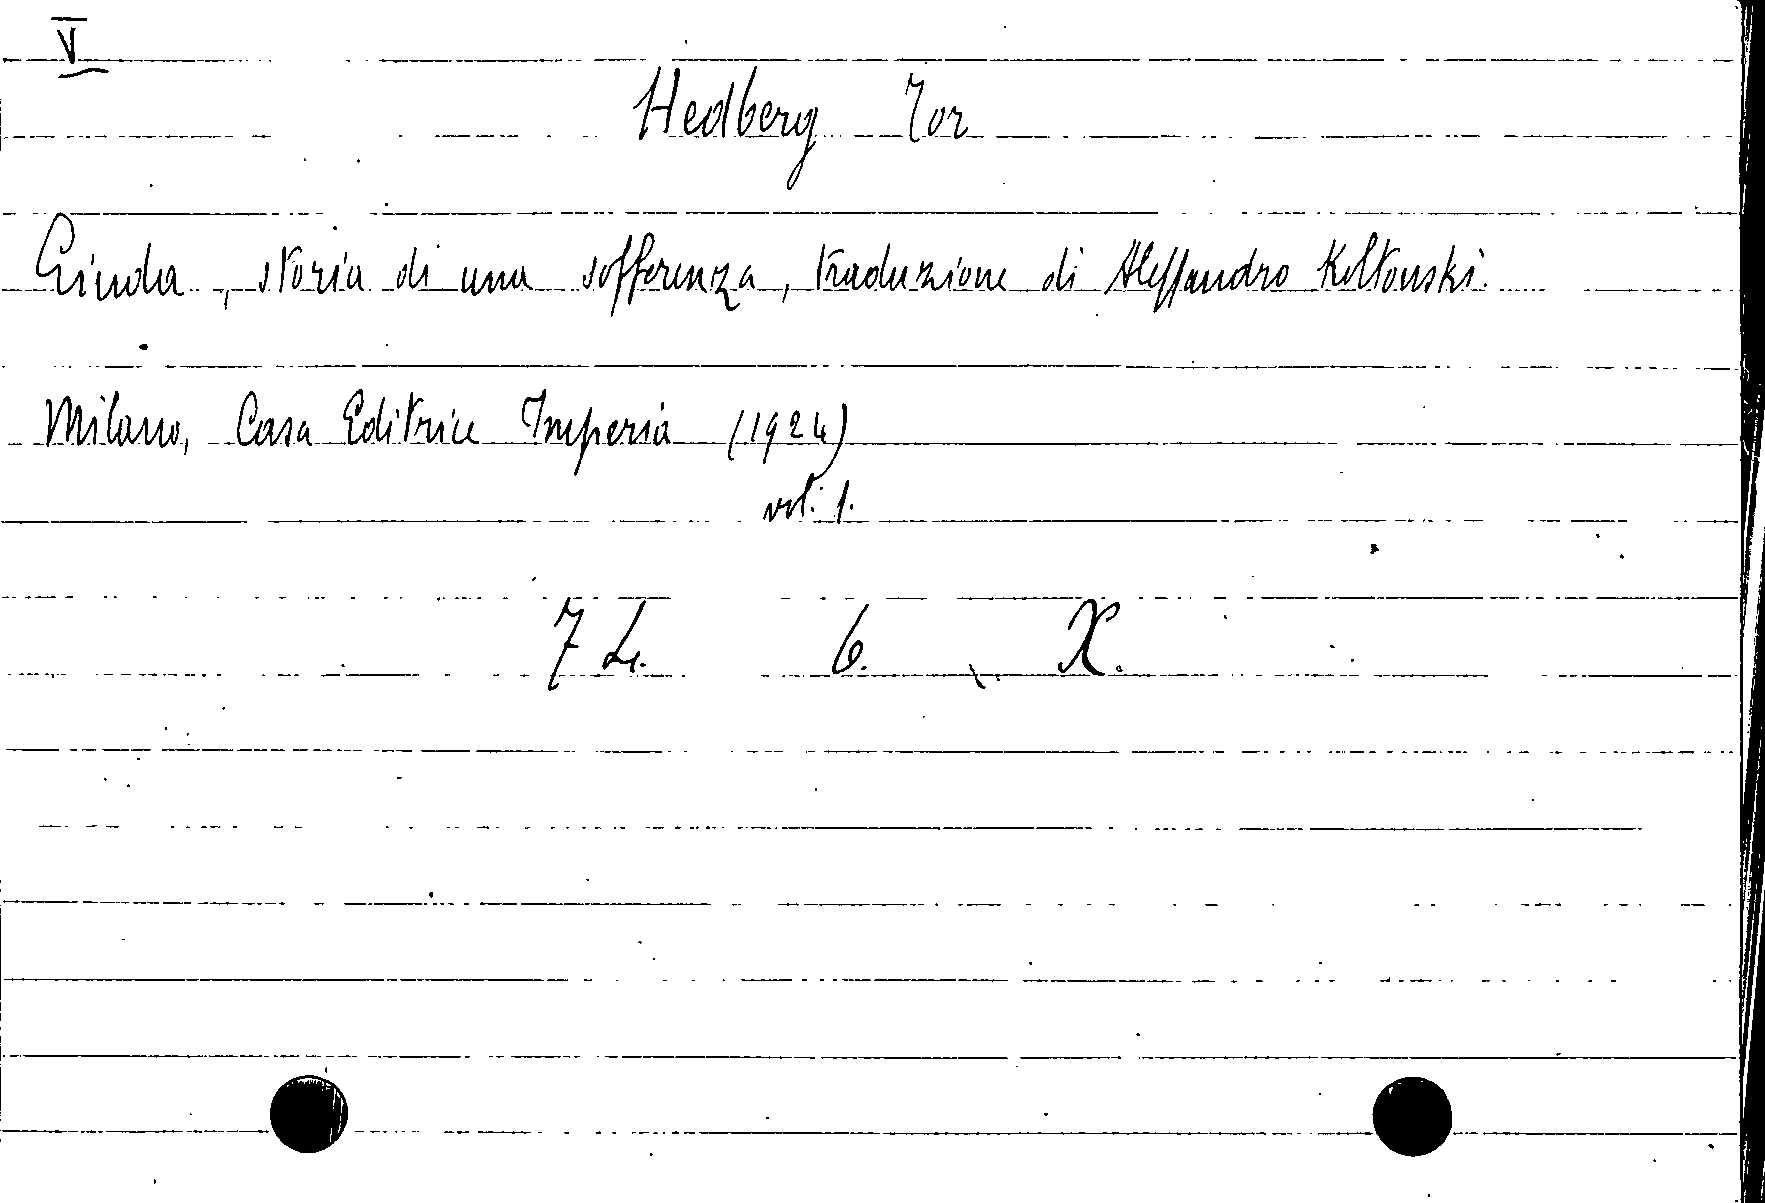 V
Hedberg Tor
Giuda, storia di una sofferenza, traduzione di Alessandro Koltonski.
Milano, Casa Editrice Imperia (1924)
vol. 1.
7 L. 6. X.